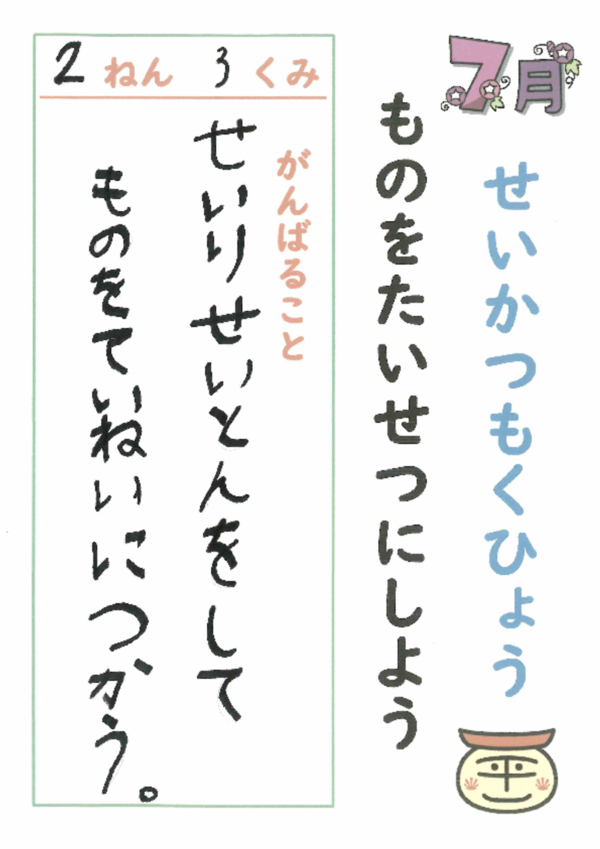 7月
せいかつもくひょう
ものをたいせつにしよう
2ねん 3くみ
がんばること
せいりせいとんをして
ものをていねいにつかう。